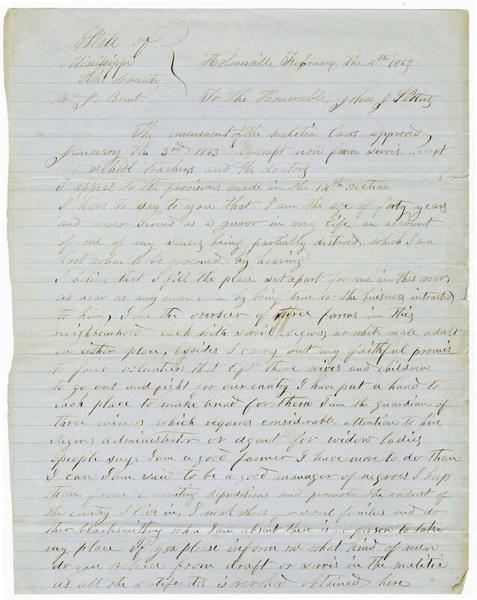 State of
Mississippi
Pike County
W J Bunt
Holmesville February the 4th 1863
To the Honorable John J Pettus
The amendment of the malitia laws approved
January the 3rd 1863 Exempt non from servis Except
school teachers and the doctors
I appeal to the provisions made in the 14th section
I have to say to you that I am the age of forty years
and never served as a juror in my life on account
of one of my senses being partially distroid which I am
when to be governed by hearing
I believe that I fill the place set apart for me in this war
as near as any man by being true to the business intrusted
to him, I am the overseer of three farms in this
neighbourhood each with negroes no white male adult
on either place, besides I carry out my faithful promis
to four volunteers that left there wives and children
to go out and fight for our cuntry I have put a hand to
each place to make bread for them I am the guardian of
three minors which requires considerable attention to hire
negroes administrator or agent for widow ladies
people says I am a good farmer I have more to do than
I can I am said to be a good manager of negroes I keep
them from committing depredations and promote the interest of
the cuntry I live in, I make shoes for several families and do
ther blacksmithing when I am absent there is no person to take
my place If you please inform me what kind of men
do you release from draft or servis in the malitia
as all the certificates is revoked obtained here